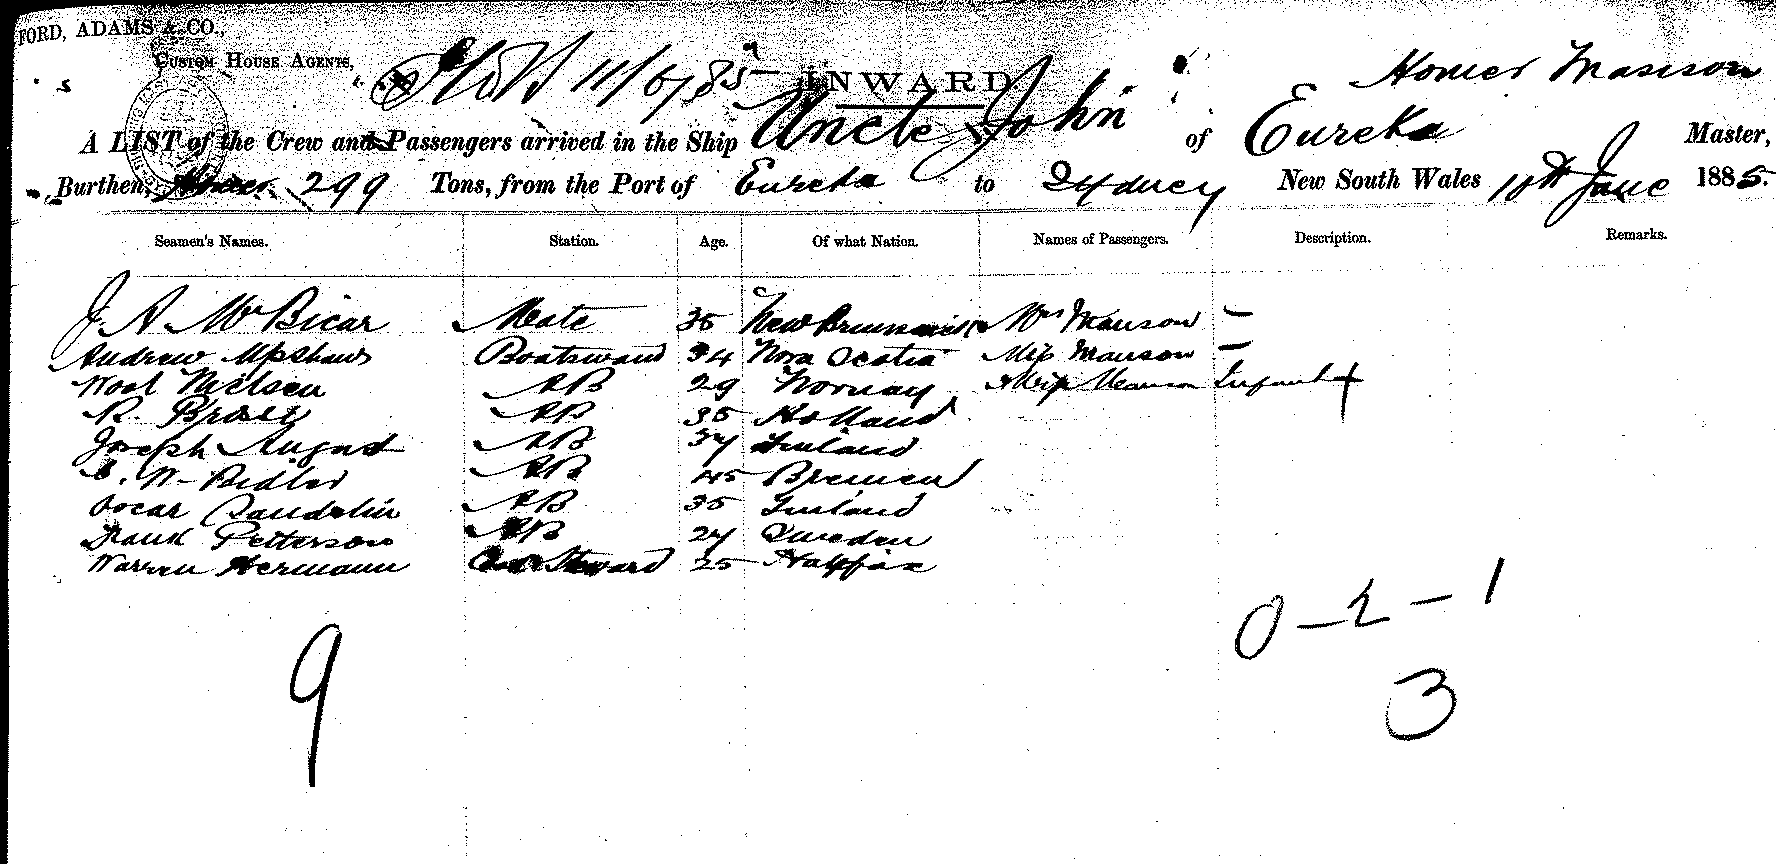 FORD, ADAMS & CO.,
CUSTOM HOUSE AGENTS,
11/6/85
INWARD
Homer Manson
A LIST of the Crew and Passengers arrived in the Ship Uncle John of Eureka Master,
Burthen, 299 Tons, from the Port of Eureka to Sydney New South Wales 10th June 1885.
Seamen's Names. Station. Age. Of what Nation. Names of Passengers. Description. Remarks.
J A McBicar Mate 35 New Brunswick Mrs Manson —
Andrew Upshaw Boatswain 34 Nova Scotia Miss Manson —
Noal Nielsen AB 29 Norway Miss Manson Infant
R. AB 35 Holland
Joseph August AB 37 Finland
W Bidler AB 45 Bremen
Oscar Sandelin AB 35 Finland
Frank Petterson AB 27 Sweden
Warren Hermann Steward 25 Halifax
0 - 2 - 1
9
3